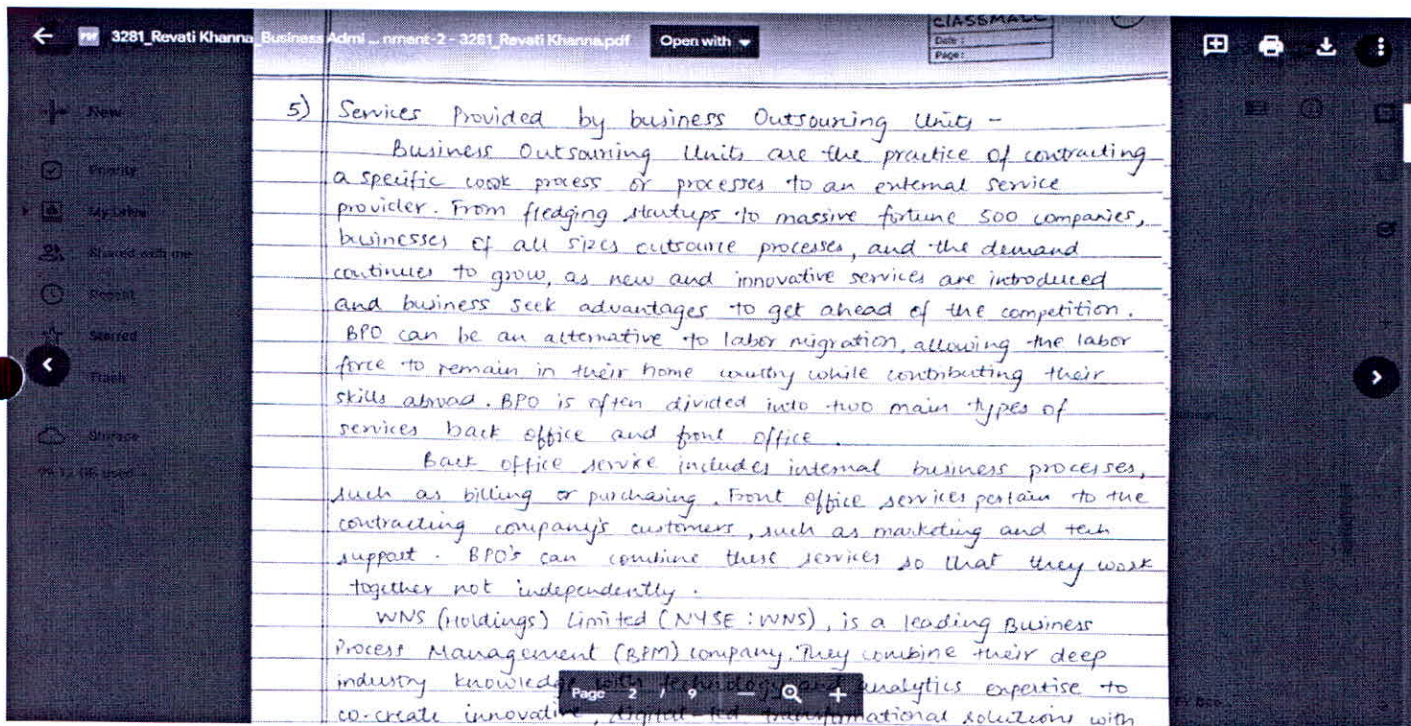 3281_Revati Khanna_Business Admi ... nment-2 - 3281_Revati Khanna.pdf
Open with
CLASSMATE
Date :
Page :
New
Priority
My Drive
Shared with me
Recent
Starred
Trash
Storage
5) Services Provided by business Outsouring Units -
Business Outsouring Units are the practice of contracting
a specific work process or processes to an external service
provider. From fledging startups to massive fortune 500 companies,
businesses of all sizes outsource processes, and the demand
continues to grow, as new and innovative services are introduced
and business seek advantages to get ahead of the competition.
BPO can be an alternative to labor migration, allowing the labor
force to remain in their home country while contributing their
skills abroad. BPO is often divided into two main types of
services back office and front office.
Back office service includes internal business processes,
such as billing or purchasing. Front office services pertain to the
contracting company's customers, such as marketing and tech
support. BPO's can combine these services so that they work
together not independently.
WNS (Holdings) Limited (NYSE : WNS), is a leading Business
Process Management (BPM) company. They combine their deep
industry knowledge with technology and analytics expertise to
co-create innovative, digital-led transformational solutions with
Page 2 / 9